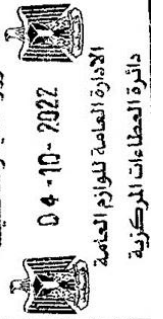 04-10-2022
الادارة العامة للوازم العامة
دائرة العطاءات المركزية